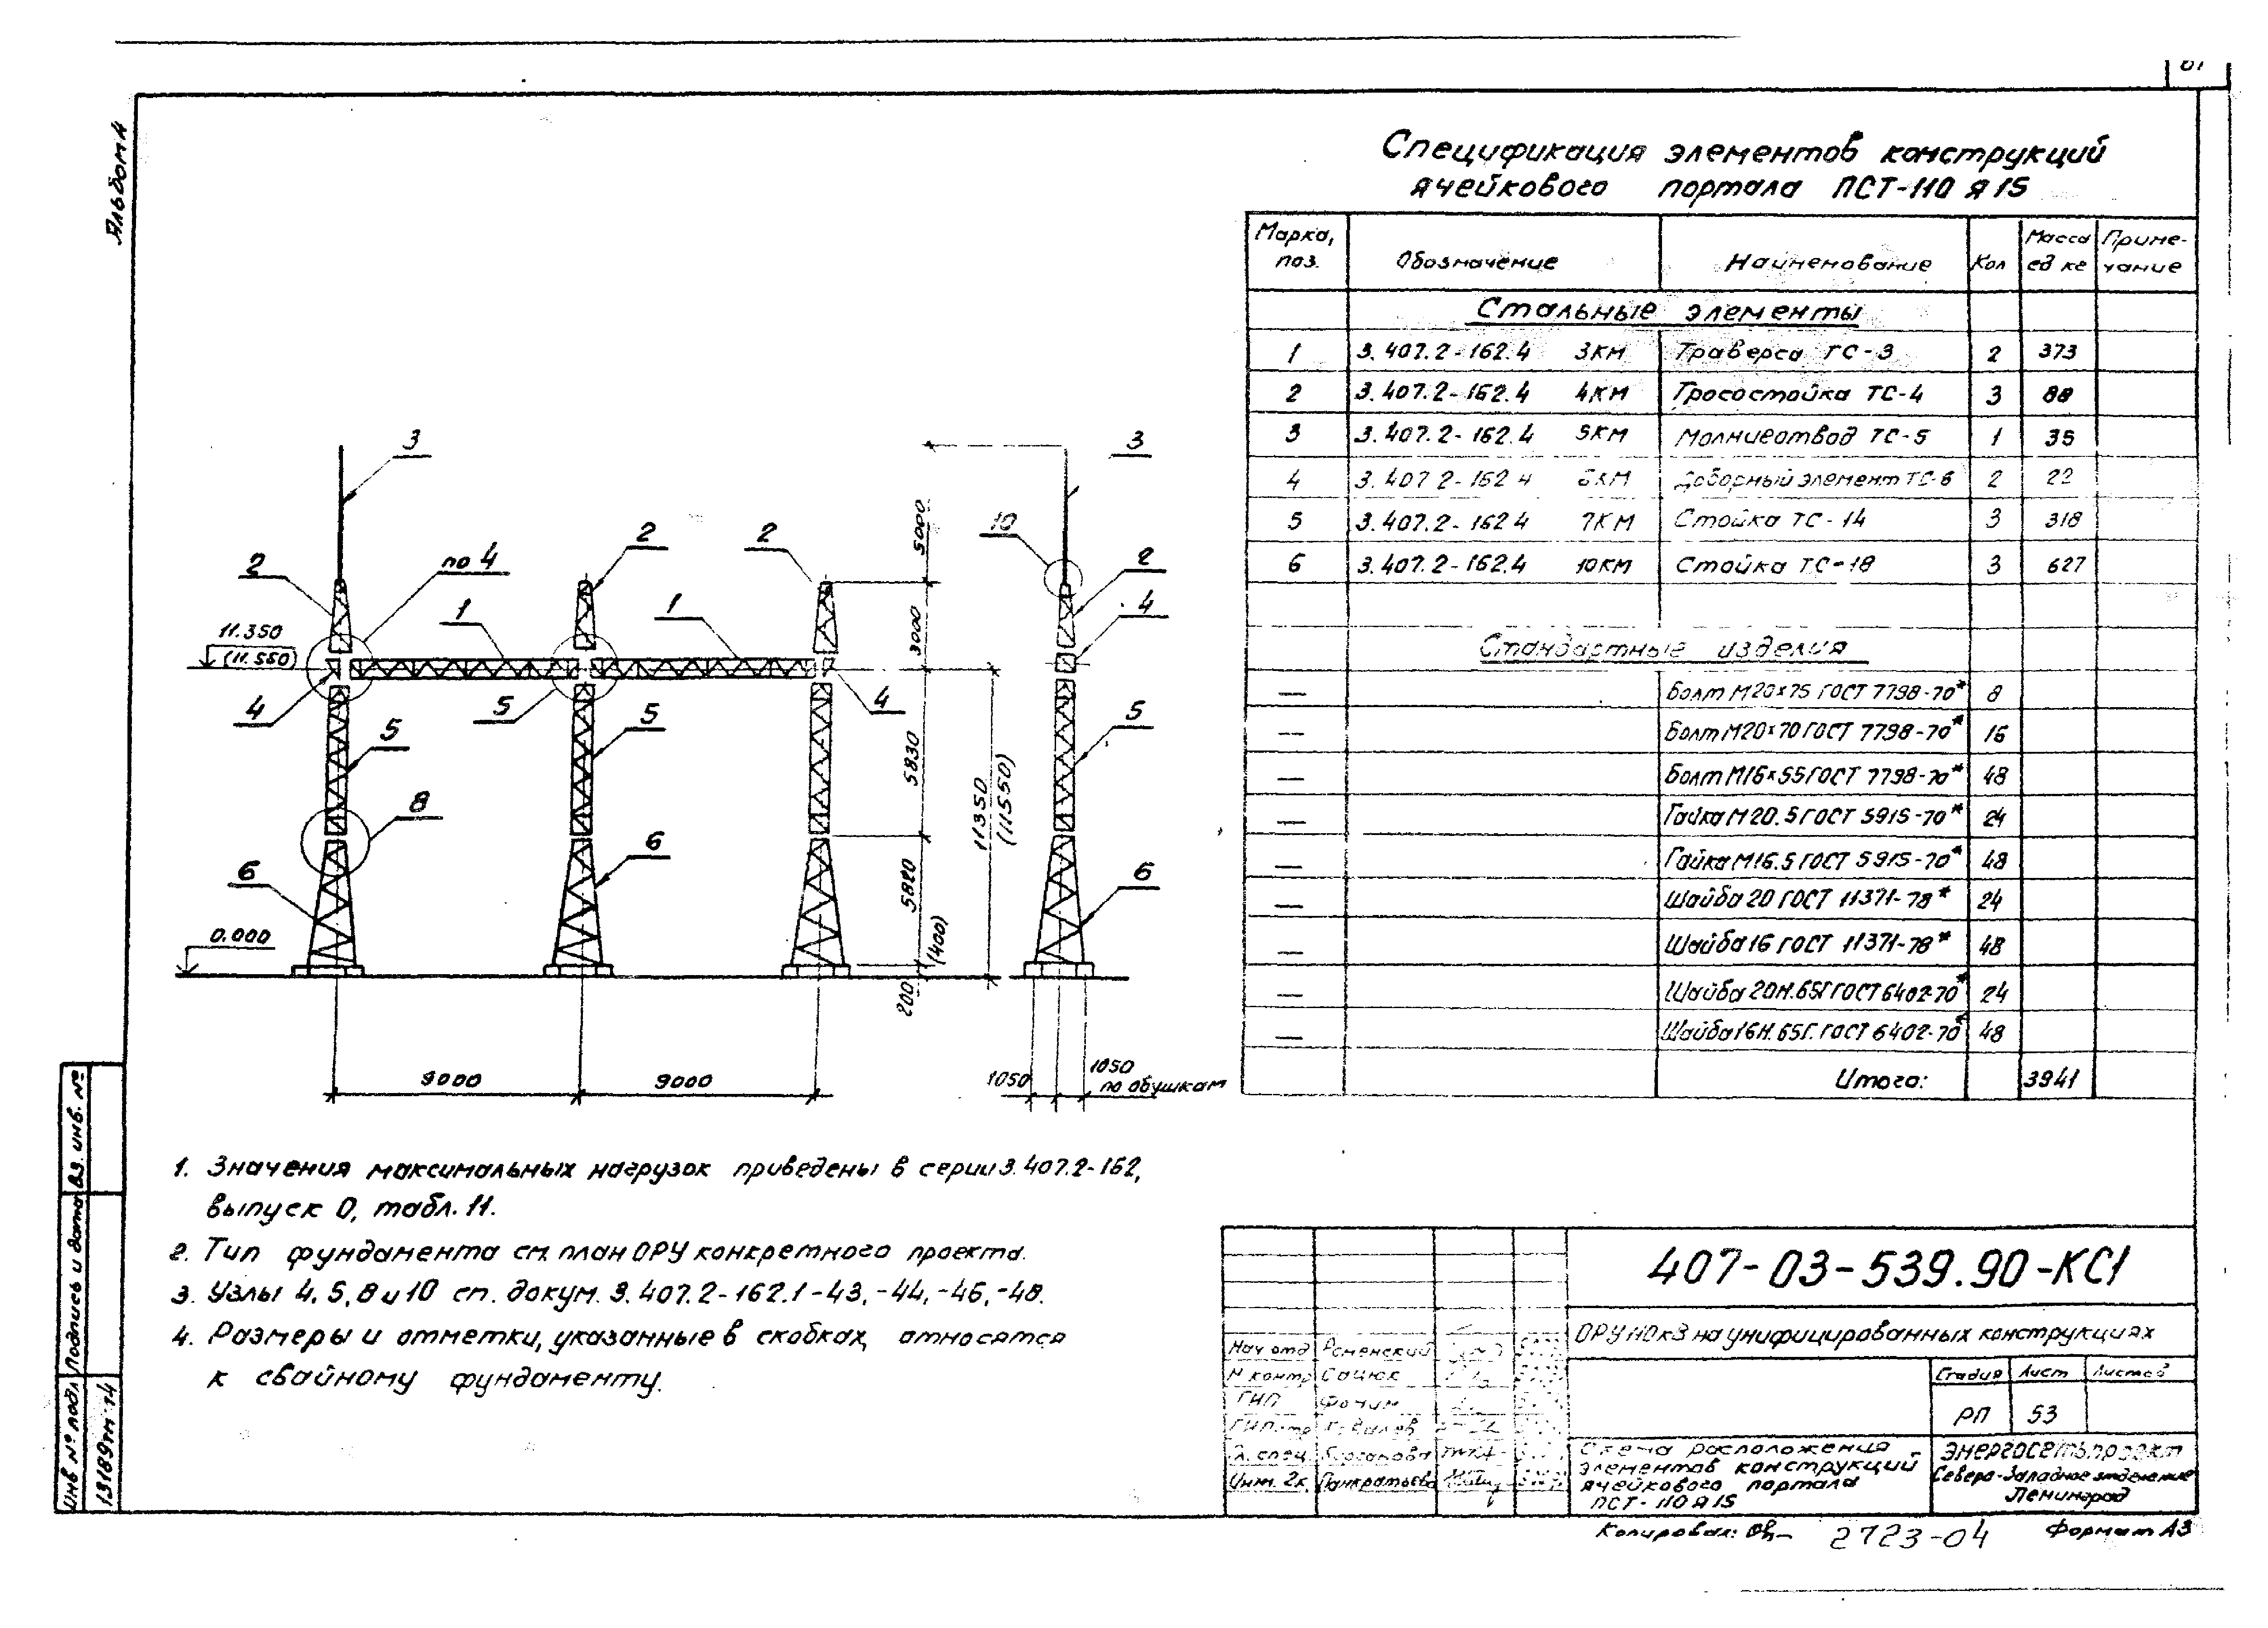 Альбом 4
Спецификация элементов конструкций
ячейкового портала ПСТ-110 Я 15
Марка, поз. Обозначение Наименование Кол Масса ед кг Приме-чание
Стальные элементы
1 3.407.2-162.4 3КМ Траверса ТС-3 2 373
2 3.407.2-162.4 4КМ Тросостойка ТС-4 3 88
3 3.407.2-162.4 5КМ Молниеотвод ТС-5 1 35
4 3.407.2-162.4 6КМ Доборный элемент ТС-6 2 22
5 3.407.2-162.4 7КМ Стойка ТС-14 3 318
6 3.407.2-162.4 10КМ Стойка ТС-18 3 627
Стандартные изделия
— Болт М20×75 ГОСТ 7798-70* 8
— Болт М20×70 ГОСТ 7798-70* 16
— Болт М16×55 ГОСТ 7798-70* 48
— Гайка М20.5 ГОСТ 5915-70* 24
— Гайка М16.5 ГОСТ 5915-70* 48
— Шайба 20 ГОСТ 11371-78* 24
— Шайба 16 ГОСТ 11371-78* 48
— Шайба 20Н.65Г ГОСТ 6402-70* 24
— Шайба 16Н.65Г. ГОСТ 6402-70* 48
Итого: 3941
3
3
10
2
по 4
2
2
2
1
1
4
11.350
(11.550)
4
5
4
5
5
5
8
6
6
6
0.000
5000
3000
5830
5820
(400)
200
11350
(11550)
9000
9000
1050
1050
по обушкам
1. Значения максимальных нагрузок приведены в серии 3.407.2-162,
выпуск 0, табл. 11.
2. Тип фундамента см. план ОРУ конкретного проекта.
3. Узлы 4, 5, 8 и 10 см. докум. 3.407.2-162.1-43, -44, -46, -48.
4. Размеры и отметки, указанные в скобках, относятся
к свайному фундаменту.
Инв № подл Подпись и дата Вз. инв. №
13189тм-т4
407-03-539.90-КС1
ОРУ 110 кВ на унифицированных конструкциях
Нач отд Роменский
Н контр Сацюк
ГИП Фомин
Инж. 2к. Панкратьева
Стадия Лист Листов
РП 53
Схема расположения
элементов конструкций
ячейкового портала
ПСТ-110 Я 15
Энергосетьпроект
Северо-Западное отделение
Ленинград
Копировал:
2723-04
Формат А3